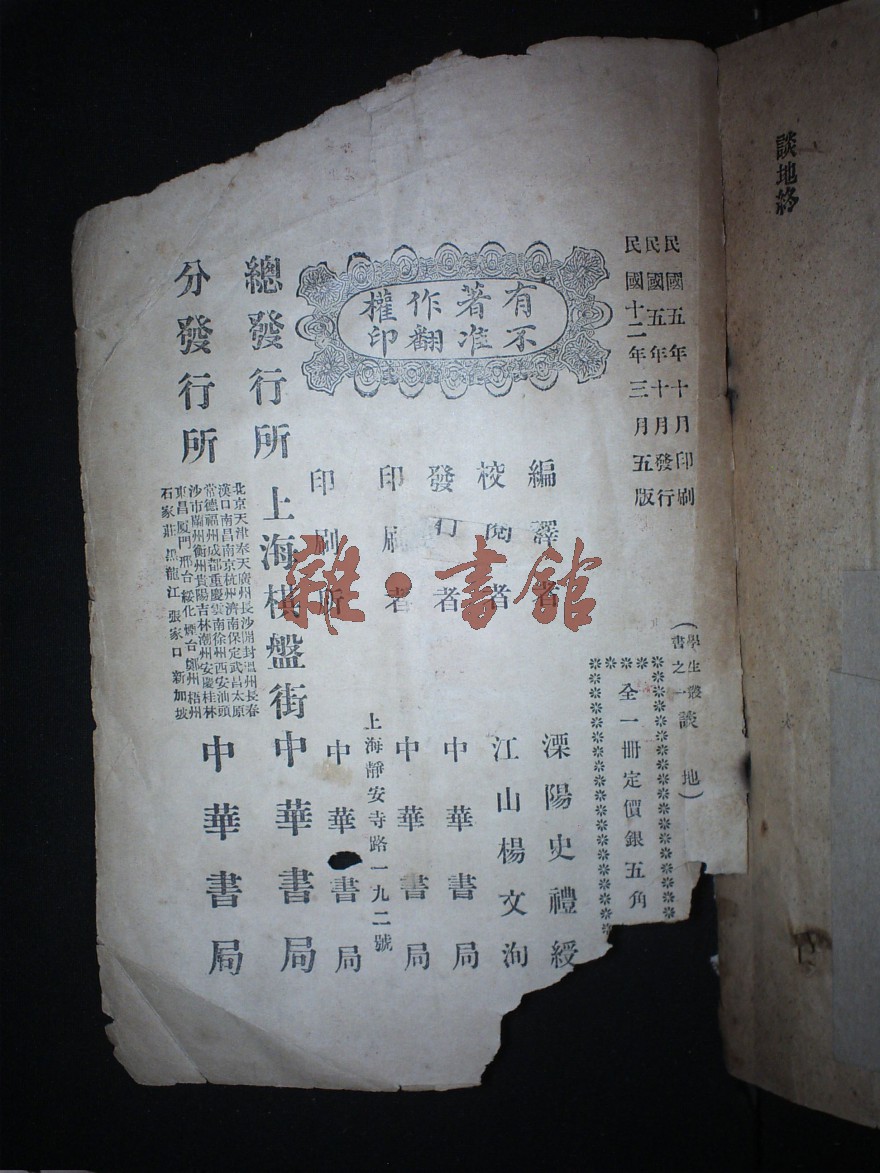 談地終
民國五年十月印刷
民國五年十月發行
民國十二年三月五版
(學生叢書之一 談地)
全一冊定價銀五角
有著作權
不准翻印
編譯者 溧陽史禮綬
校閱者 江山楊文洵
發行者 中華書局
印刷者 中華書局
上海靜安寺路一九二號
印刷所 中華書局
總發行所 上海棋盤街中華書局
分發行所
北京天津奉天廣州長沙開封溫州長春
漢口南昌南京杭州濟南保定武昌太原
常德福州成都重慶雲南徐州西安汕頭
沙市蘭州衡州貴陽吉林潮州安慶桂林
東昌厦門邢台綏化煙台鄭州梧州
石家莊黑龍江張家口新加坡
中華書局
雜·書館